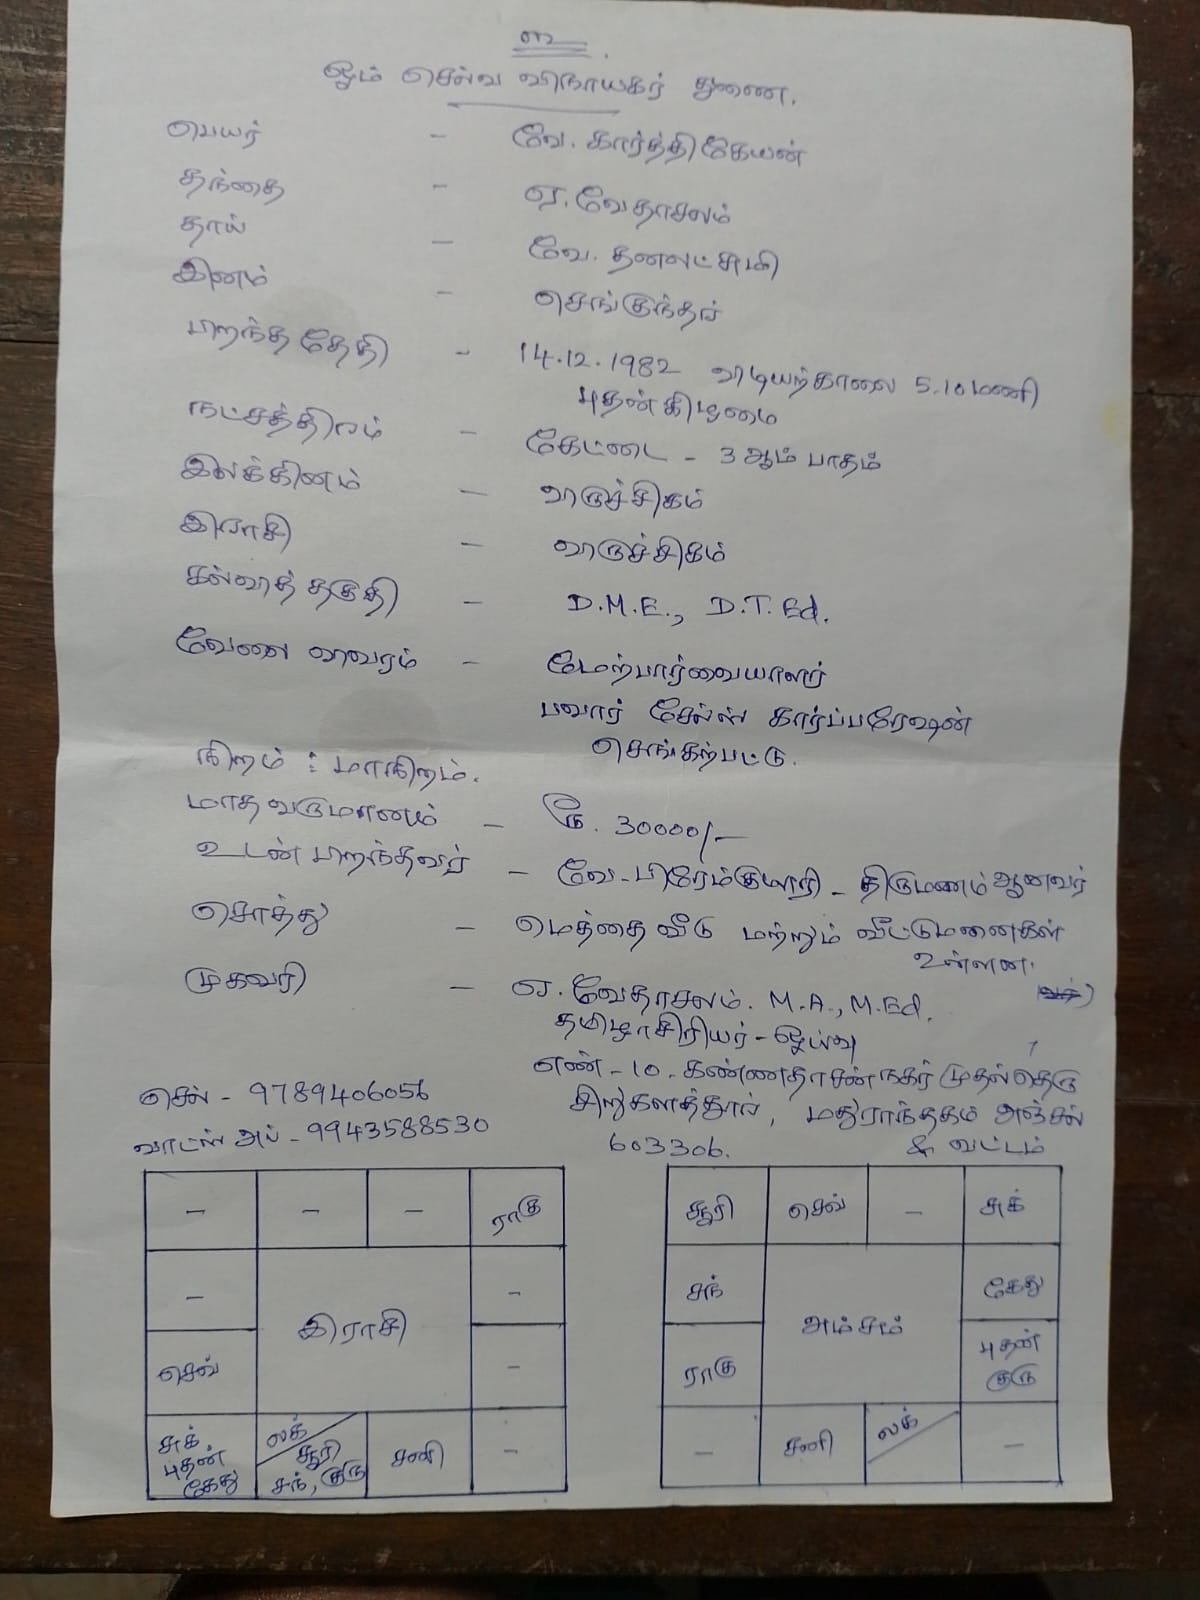 உ
ஓம் செல்வ விநாயகர் துணை.
பெயர் - வே. கார்த்திகேயன்
தந்தை - ஏ. வேதாசலம்
தாய் - வே. தனலட்சுமி
இனம் - செங்குந்தர்
பிறந்த தேதி - 14.12.1982 விடியற்காலை 5.10 மணி
புதன் கிழமை
நட்சத்திரம் - கேட்டை - 3 ஆம் பாதம்
இலக்கினம் - விருச்சிகம்
இராசி - விருச்சிகம்
கல்வித் தகுதி - D.M.E., D.T.Ed.
வேலை விவரம் - மேற்பார்வையாளர்
பவார் சேல்ஸ் கார்ப்பரேஷன்
செங்கற்பட்டு.
நிறம் : மாநிறம்.
மாத வருமானம் - ரூ. 30000/-
உடன் பிறந்தவர் - வே. பிரேம்குமாரி - திருமணம் ஆனவர்
சொத்து - மெத்தை வீடு மற்றும் வீட்டுமனைகள்
உள்ளன.
முகவரி - ஏ. வேதாசலம். M.A., M.Ed.
தமிழாசிரியர் - ஓய்வு
எண் - 10. கண்ணதாசன் நகர் முதல் தெரு
செல் - 9789406056
சிறுகளத்தூர், மதுராந்தகம் அஞ்சல்
வாட்ஸ் அப் - 9943588530
603306. & வட்டம்
- - - ராகு
- இராசி -
செவ் -
சுக் புதன் கேது
லக் சூரி சந், குரு
சனி
-
சூரி செவ் - சுக்
சந் அம்சம் கேது
ராகு புதன் குரு
- சனி லக் -